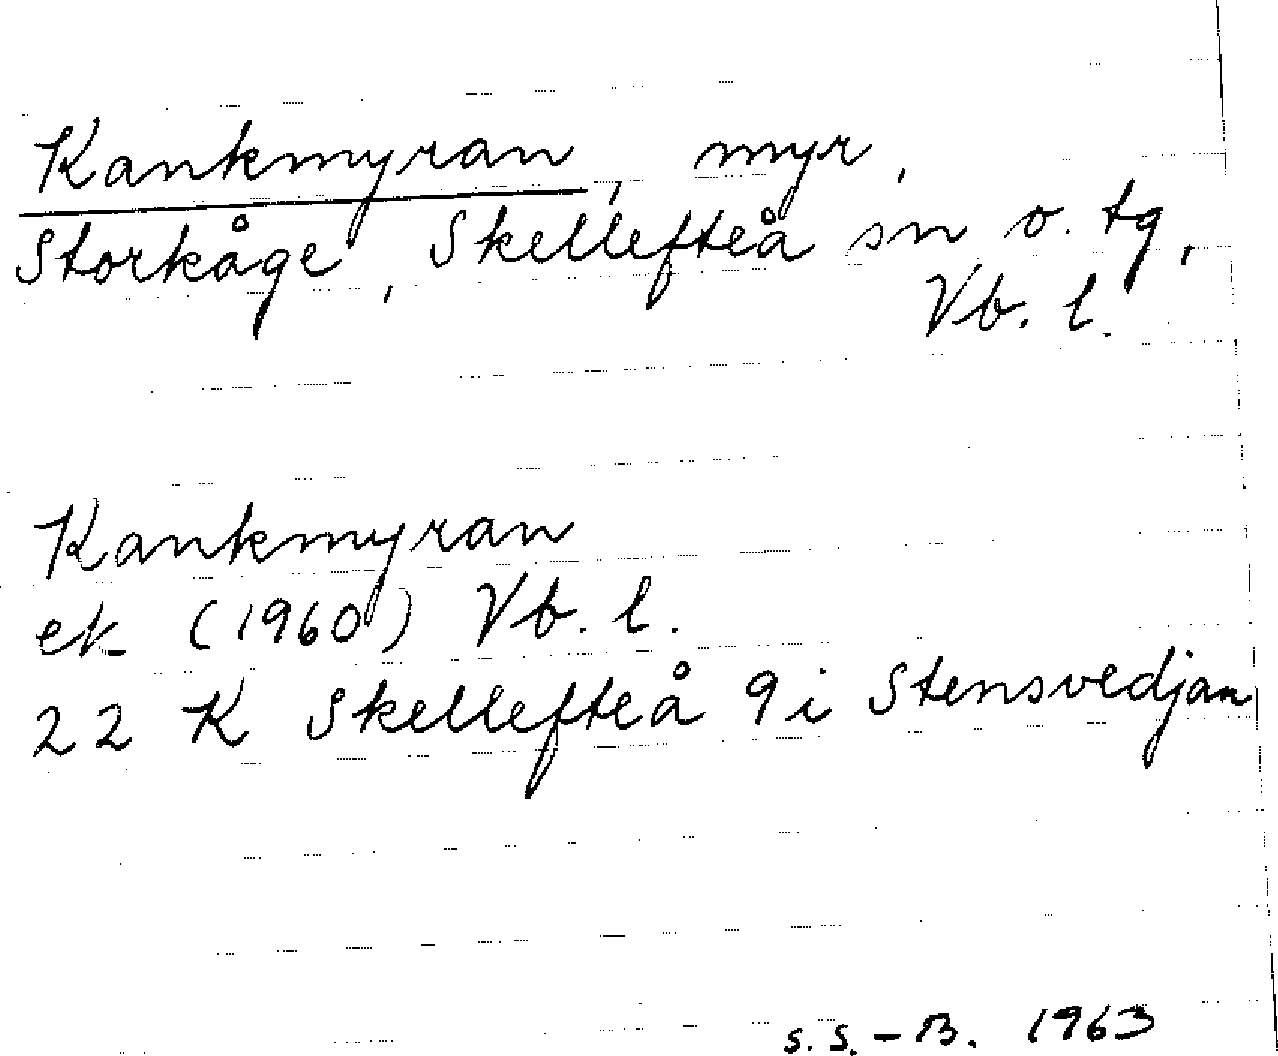 Kankmyran, myr,
Storkåge, Skellefteå sn o. tg,
Vb. l.
Kankmyran
ek (1960) Vb. l.
22 K Skellefteå 9i Stensvedjan
S.S.-B. 1963